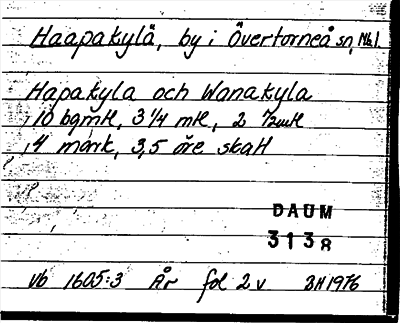 Haapakylä, by i Övertorneå sn, Nb l.
Hapakyla och Wanakyla
10 bgmH, 3 1/4 mH, 2 1/2 mH
4 mark, 3,5 öre skatt
DAUM
3138
Vb 1605:3 År fol 2 v BH 1976